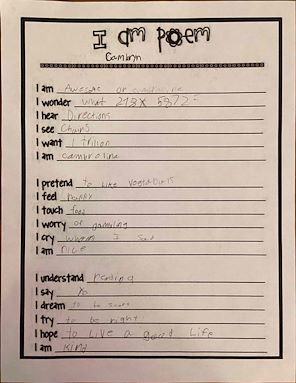 I am poem
Camryn
I am Awesome or
I wonder what 213 x 5372 =
I hear Directions
I see Chains
I want 1 trillion
I am
I pretend to like vegetables
I feel happy
I touch food
I worry of gambling
I cry when I
I am nice
I understand reading
I say
I dream to be
I try to be right
I hope to Live a good Life
I am kind